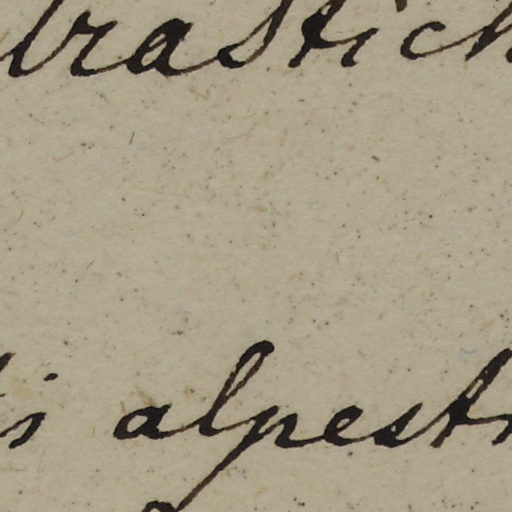 brastich
is alpest